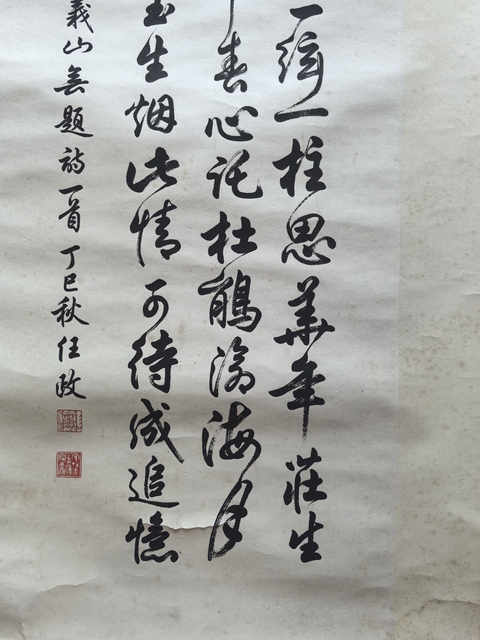 一弦一柱思華年莊生
春心託杜鵑滄海月
生烟此情可待成追憶
義山無題詩一首丁巳秋任政